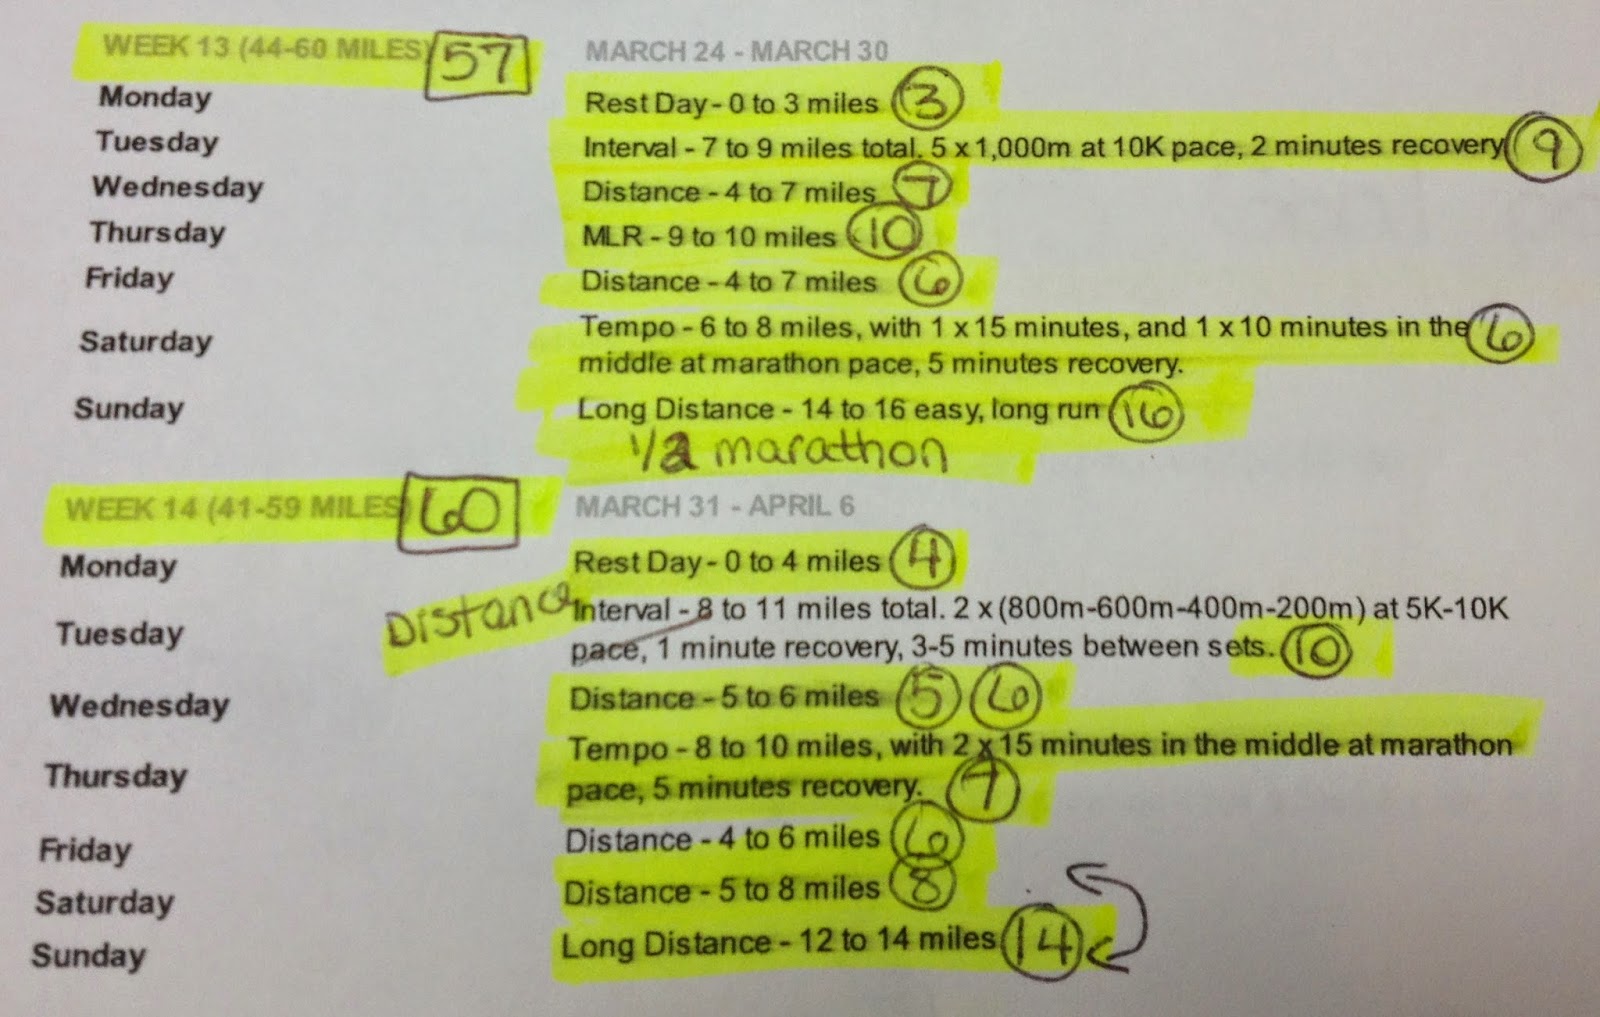 WEEK 13 (44-60 MILES) 57 MARCH 24 - MARCH 30
Monday Rest Day - 0 to 3 miles 3
Tuesday Interval - 7 to 9 miles total. 5 x 1,000m at 10K pace, 2 minutes recovery 9
Wednesday Distance - 4 to 7 miles 7
Thursday MLR - 9 to 10 miles 10
Friday Distance - 4 to 7 miles 6
Saturday Tempo - 6 to 8 miles, with 1 x 15 minutes, and 1 x 10 minutes in the 6
middle at marathon pace, 5 minutes recovery.
Sunday Long Distance - 14 to 16 easy, long run 16
1/2 marathon
WEEK 14 (41-59 MILES) 60 MARCH 31 - APRIL 6
Monday Rest Day - 0 to 4 miles 4
Tuesday Distance Interval - 8 to 11 miles total. 2 x (800m-600m-400m-200m) at 5K-10K
pace, 1 minute recovery, 3-5 minutes between sets. 10
Wednesday Distance - 5 to 6 miles 5 6
Thursday Tempo - 8 to 10 miles, with 2 x 15 minutes in the middle at marathon
pace, 5 minutes recovery. 7
Friday Distance - 4 to 6 miles 6
Saturday Distance - 5 to 8 miles 8
Sunday Long Distance - 12 to 14 miles 14